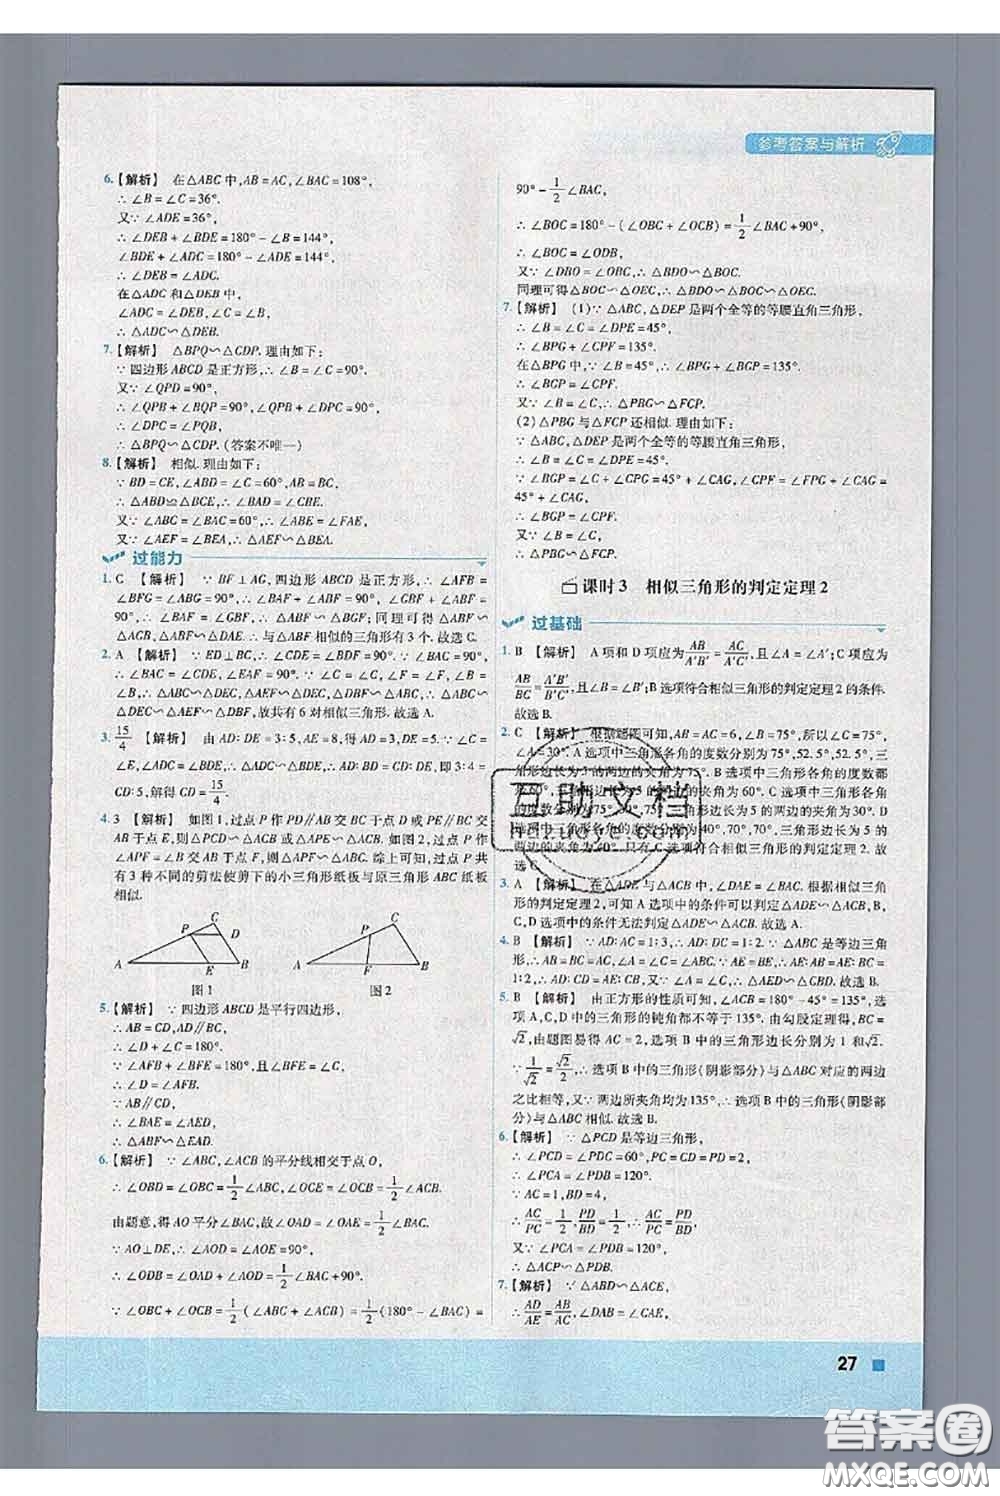 参考答案与解析
6.【解析】 在△ABC中,AB=AC,∠BAC=108°,
∴∠B=∠C=36°.
又∵∠ADE=36°,
∴∠DEB+∠BDE=180°-∠B=144°,
∠BDE+∠ADC=180°-∠ADE=144°,
∴∠DEB=∠ADC.
在△ADC和△DEB中,
∠ADC=∠DEB,∠C=∠B,
∴△ADC∽△DEB.
7.【解析】 △BPQ∽△CDP.理由如下:
∵四边形ABCD是正方形,∴∠B=∠C=90°.
又∵∠QPD=90°,
∴∠QPB+∠BQP=90°,∠QPB+∠DPC=90°,
∴∠DPC=∠PQB,
∴△BPQ∽△CDP.(答案不唯一)
8.【解析】 相似.理由如下:
∵BD=CE,∠ABD=∠C=60°,AB=BC,
∴△ABD≌△BCE,∴∠BAD=∠CBE.
又∵∠ABC=∠BAC=60°,∴∠ABE=∠FAE,
又∵∠AEF=∠BEA,∴△AEF∽△BEA.
过能力
1. C 【解析】 ∵BF⊥AG,四边形ABCD是正方形,∴∠AFB=
∠BFG=∠ABG=90°,∠ADE=90°.∵∠GBF+∠BGF=90°,
∠GBF+∠ABF=90°,∴∠ABF=∠BGF,∠BAG=∠GBF,
∴△ABG∽△AFB,△ABG∽△BFG;同理可得∠ABF=
∠DAE,∴△ABF∽△DAE.∴与△ABF相似的三角形有3个.故选C.
2. A 【解析】 ∵ED⊥BC,∴∠CDE=∠BDF=90°.∵∠BAC=90°,
∴∠BAC=∠CDE,∠EAF=90°.∵∠C=∠C,∠F=∠F,∠B=∠B,
∴△ABC∽△DEC,△AEF∽△DBF,△ABC∽△DBF,
∴△ABC∽△AEF,△DEC∽△AEF,
△DEC∽△DBF,故共有6对相似三角形.故选A.
3. 15/4 【解析】 由AD∶DE=3∶5,AE=8,得AD=3,DE=5.∵∠C=
∠E,∠ADB=∠CDE,∴△ADB∽△CDE,∴AD∶CD=BD∶DE,即3∶4=
CD∶5,解得CD=15/4.
4. 3 【解析】 如图1,过点P作PD∥AB交BC于点D或PE∥BC交
AB于点E,则△PCD∽△ACB或△APE∽△ACB.如图2,过点P作
∠AFP=∠C交AB于点F,则△APF∽△ABC.综上可知,过点P共
有3种不同的剪法使剪下的小三角形纸板与原三角形ABC纸板
相似.
A P C D E B A P C F B
图1 图2
5.【解析】 ∵四边形ABCD是平行四边形,
∴AB=CD,AD∥BC,
∴∠D+∠C=180°.
∵∠AFB+∠BFE=180°,且∠BFE=∠C,
∴∠D=∠AFB.
∵AB∥CD,
∴∠BAE=∠AED,
∴△ABF∽△EAD.
6.【解析】 ∵∠ABC,∠ACB的平分线相交于点O,
∴∠OBD=∠OBC=1/2∠ABC,∠OCE=∠OCB=1/2∠ACB.
由题意,得AO平分∠BAC,故∠OAD=∠OAE=1/2∠BAC.
∵AO⊥DE,∴∠AOD=∠AOE=90°,
∴∠ODB=∠OAD+∠AOD=1/2∠BAC+90°.
∵∠OBC+∠OCB=1/2(∠ABC+∠ACB)=1/2(180°-∠BAC)=
90°-1/2∠BAC,
∴∠BOC=180°-(∠OBC+∠OCB)=1/2∠BAC+90°,
∴∠BOC=∠ODB,
又∵∠DBO=∠OBC,∴△BDO∽△BOC.
同理可得△BOC∽△OEC,∴△BDO∽△BOC∽△OEC.
7.【解析】 (1)∵△ABC,△DEP是两个全等的等腰直角三角形,
∴∠B=∠C=∠DPE=45°,
∴∠BPG+∠CPF=135°.
在△BPG中,∵∠B=45°,∴∠BPG+∠BGP=135°.
∴∠BGP=∠CPF.
又∵∠B=∠C,∴△PBG∽△FCP.
(2)△PBG与△FCP还相似.理由如下:
∵△ABC,△DEP是两个全等的等腰直角三角形,
∴∠B=∠C=∠DPE=45°.
∵∠BGP=∠C+∠CPG=45°+∠CAG,∠CPF=∠DPE+∠CPG=
45°+∠CAG,
∴∠BGP=∠CPF.
又∵∠B=∠C,
∴△PBG∽△FCP.
课时3 相似三角形的判定定理2
过基础
1. B 【解析】 A项和D项应为AB/A'B'=AC/A'C',且∠A=∠A';C项应为
AB/BC=A'B'/B'C',且∠B=∠B';B选项符合相似三角形的判定定理2的条件.
故选B.
2. C 【解析】 根据题图可知,AB=AC=6,∠B=75°,所以∠C=75°,
∠A=30°.A选项中三角形各角的度数分别为75°,52.5°,52.5°,三
角形长为5的两边的夹角为75°.B选项中三角形各角的度数都
是60°,三角形长为5的两边的夹角为60°.C选项中三角形各角的
度数分别为75°,30°,75°,三角形边长为5的两边的夹角为30°.D
选项中三角形各角的度数分别为40°,70°,70°,三角形长为5的
两边的夹角为40°.故选C.
3. A 【解析】 在△ADE与△ACB中,∠DAE=∠BAC.根据相似三角
形的判定定理2,可知A选项中的条件可以判定△ADE∽△ACB,B,
C,D选项中的条件无法判定△ADE∽△ACB.故选A.
4. B 【解析】 ∵AD∶AC=1∶3,∴AD∶DC=1∶2.∵△ABC是等边三角
形,∴AB=BC=AC,∠A=∠C.∵AE=BE,∴AE∶AB=AE∶BC=
1∶2,∴AD∶CD=AE∶BC,∴△AED∽△CBD.故选B.
5. B 【解析】 由正方形的性质可知,∠ACB=180°-45°=135°,选
项A,C,D中的三角形的钝角都不等于135°.由勾股定理得BC=
√2,由题图易得AC=2,选项B中的三角形边长分别为1和√2.
∵1/√2=√2/2,∴选项B中的三角形(阴影部分)与△ABC对应的两边
之比相等,又∵两边所夹角均为135°,∴选项B中的三角形(阴影
部分)与△ABC相似.故选B.
6.【解析】 ∵△PCD是等边三角形,
∴∠PCD=∠PDC=60°,PC=CD=PD=2,
∴∠PCA=∠PDB=120°.
∵AC=1,BD=4,
∴AC/PC=1/2,PD/BD=1/2,∴AC/PC=PD/BD.
又∵∠PCA=∠PDB=120°,
∴△ACP∽△PDB.
7.【解析】 ∵△ABD∽△ACE,
∴AD/AE=AB/AC,∠DAB=∠CAE,
27
互助文档
huzuoye.com
答案圈
MXQE.COM